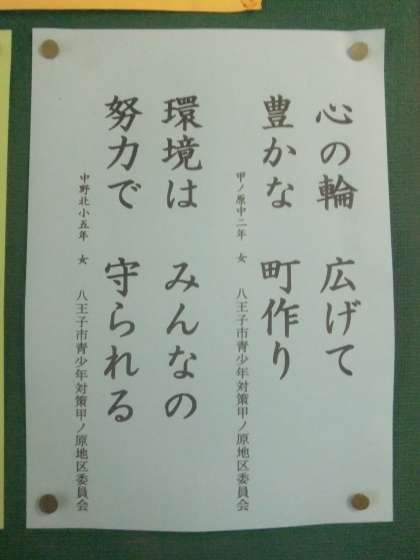 心の輪 広げて
豊かな 町作り
甲ノ原中二年 女 八王子市青少年対策甲ノ原地区委員会
環境は みんなの
努力で 守られる
中野北小五年 女 八王子市青少年対策甲ノ原地区委員会